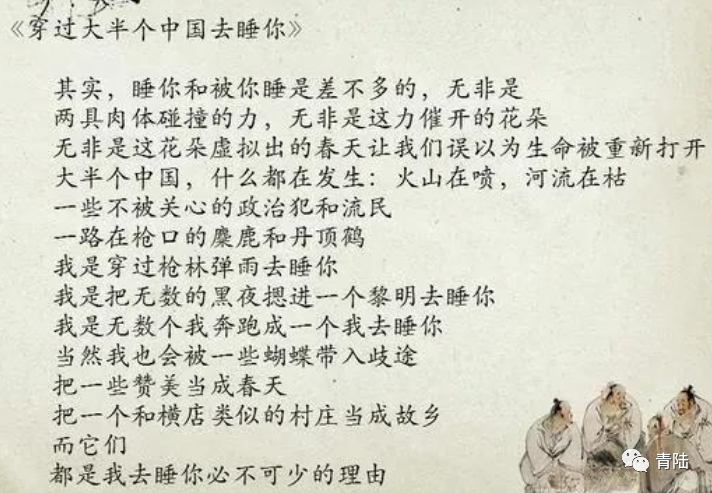 《穿过大半个中国去睡你》
其实，睡你和被你睡是差不多的，无非是
两具肉体碰撞的力，无非是这力催开的花朵
无非是这花朵虚拟出的春天让我们误以为生命被重新打开
大半个中国，什么都在发生：火山在喷，河流在枯
一些不被关心的政治犯和流民
一路在枪口的麋鹿和丹顶鹤
我是穿过枪林弹雨去睡你
我是把无数的黑夜摁进一个黎明去睡你
我是无数个我奔跑成一个我去睡你
当然我也会被一些蝴蝶带入歧途
把一些赞美当成春天
把一个和横店类似的村庄当成故乡
而它们
都是我去睡你必不可少的理由
青陆